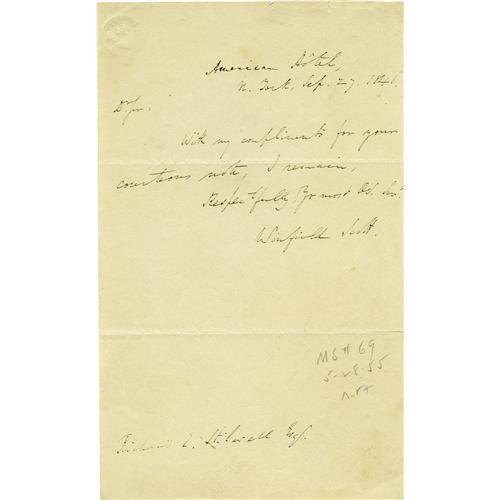 American Hôtel,
N. York, Sep. 27, 1841.
Dr Sir.
With my compliments for your
courteous note, I remain,
Respectfully, Yr most Ob. Servt
Winfield Scott.
MS# 69
5-28-55
Richard E. Stilwell Esq.